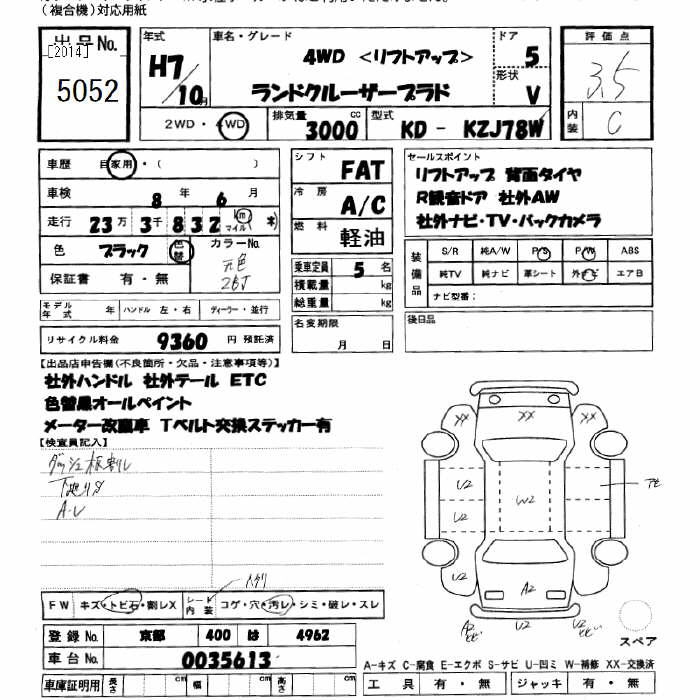 (複合機)対応用紙
出品No.
[2014]
5052
年式
H7/10月
車名・グレード
4WD <リフトアップ>
ランドクルーザープラド
ドア
5
形状
V
評価点
3.5
内装
C
2WD・4WD
排気量 3000 cc
型式 KD - KZJ78W
車歴 自家用・( )
車検 8年 6月
走行 23万3千832 km マイル
色 ブラック 色替 カラーNo.
元色
2BJ
保証書 有・無
モデル年式 年 ハンドル 左・右 ディーラー・並行
リサイクル料金 9360 円 預託済
シフト FAT
冷房 A/C
燃料 軽油
乗車定員 5 名
積載量 kg
総重量 kg
名変期限
月 日
セールスポイント
リフトアップ 背面タイヤ
R観音ドア 社外AW
社外ナビ・TV・バックカメラ
装備品
S/R 純A/W P/S P/W ABS
純TV 純ナビ 革シート 外ナビ エアB
ナビ型番:
後日品
【出品店申告欄(不良箇所・欠品・注意事項等)】
社外ハンドル 社外テール ETC
色替黒オールペイント
メーター改ザン車 Tベルト交換ステッカー有
【検査員記入】
ダッシュ板割レ
下廻リS
A-U
FW キズ・トビ石・割レX
シート内装 コゲ・穴・汚レ・シミ・破レ・スレ
登録No. 京都 400 は 4962
車台No. 0035613
車庫証明用 長さ cm 幅 cm 高さ cm
XX
XX
XX
U2
U2
W2
U2
A2
U2
U2
スペア
A-キズ C-腐食 E-エクボ S-サビ U-凹ミ W-補修 XX-交換済
工具 有・無 ジャッキ 有・無